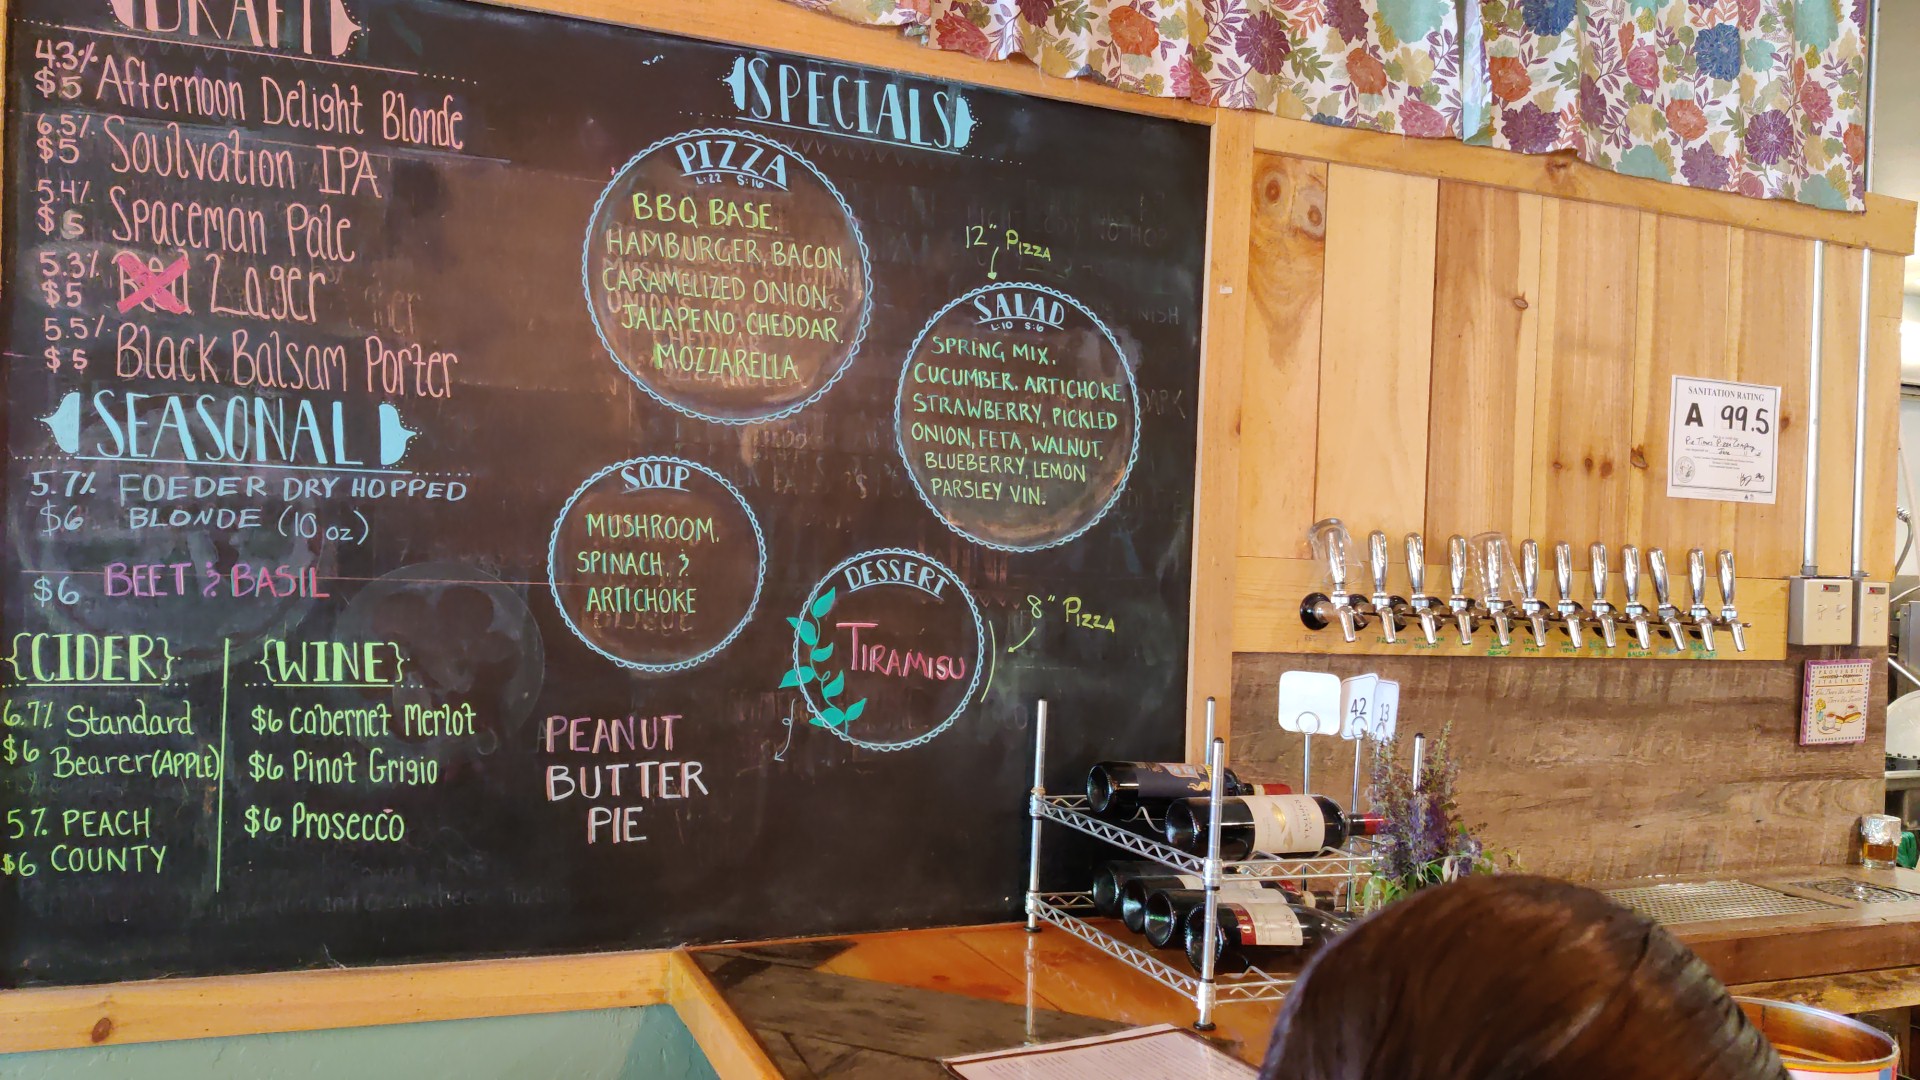 DRAFT
4.3% Afternoon Delight Blonde
$5
6.5% Soulvation IPA
$5
5.4% Spaceman Pale
$5
5.3% Red Lager
$5
5.5% Black Balsam Porter
$5
SEASONAL
5.7% FOEDER DRY HOPPED
$6 BLONDE (10 oz)
$6 BEET & BASIL
{CIDER}
6.7% Standard
$6 Bearer (APPLE)
5% PEACH
$6 COUNTY
{WINE}
$6 Cabernet Merlot
$6 Pinot Grigio
$6 Prosecco
SPECIALS
PIZZA
L:22 S:16
BBQ BASE.
HAMBURGER, BACON,
CARAMELIZED ONION,
JALAPENO, CHEDDAR,
MOZZARELLA
12" PIZZA
SALAD
L:10 S:6
SPRING MIX,
CUCUMBER, ARTICHOKE,
STRAWBERRY, PICKLED
ONION, FETA, WALNUT,
BLUEBERRY, LEMON
PARSLEY VIN.
SOUP
MUSHROOM,
SPINACH, &
ARTICHOKE
DESSERT
TIRAMISU
8" PIZZA
PEANUT
BUTTER
PIE
SANITATION RATING
A 99.5
42
13